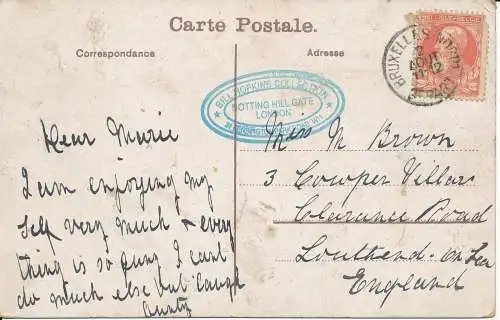 Carte Postale.
Correspondance
Adresse
BRUXELLES
AOUT
BILL HOPKINS COLLECTION
NOTTING HILL GATE
LONDON
Dear Marie
I am enjoying my
self very much & every
thing is so funy I cant
do much else but laugh
Aunty
Miss M Brown
3 Cowper Villas
Clarance Road
Southend-on Sea
England